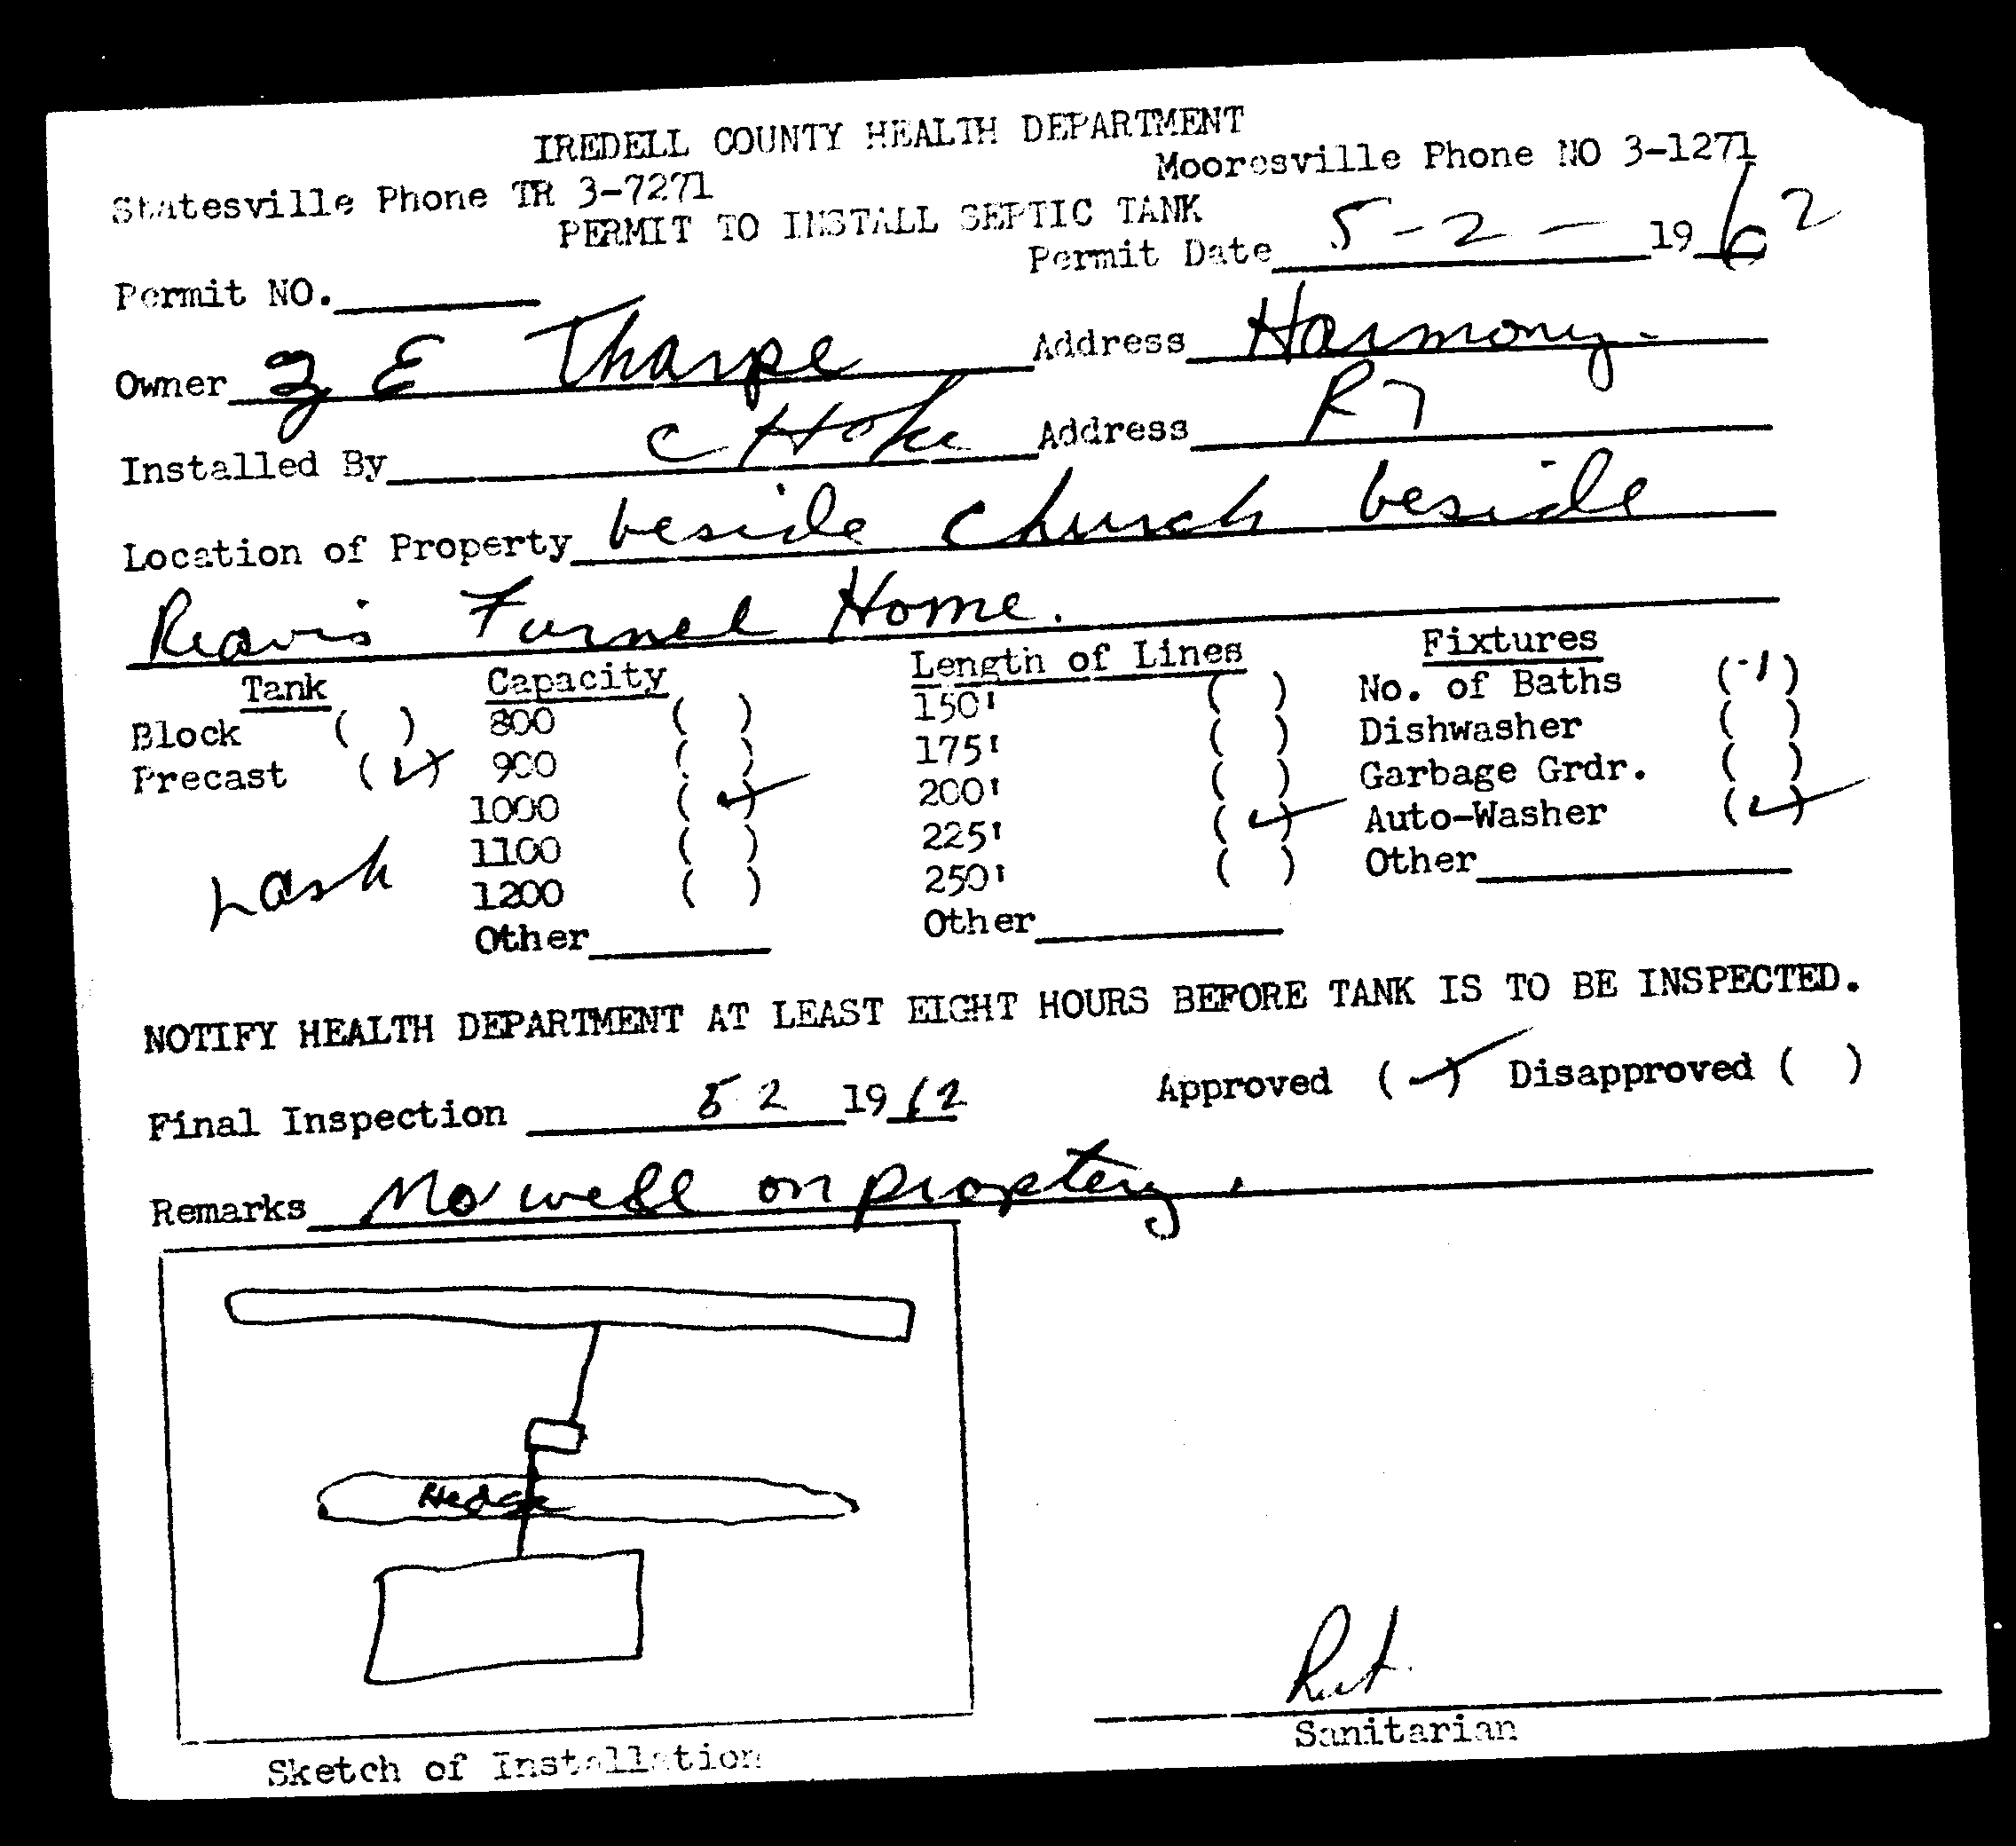 IREDELL COUNTY HEALTH DEPARTMENT
Statesville Phone TR 3-7271 Mooresville Phone NO 3-1271
PERMIT TO INSTALL SEPTIC TANK
Permit NO. Permit Date 5-2- 1962
Owner Z E Tharpe Address Harmony.
Installed By C Hoke Address R7
Location of Property beside church beside
Reavis Furnel Home.
Tank Capacity Length of Lines Fixtures
Block ( ) 800 ( ) 150' ( ) No. of Baths (1)
Precast (✓) 900 ( ) 175' ( ) Dishwasher ( )
1000 (✓) 200' ( ) Garbage Grdr. ( )
1100 ( ) 225' (✓) Auto-Washer (✓)
Lash 1200 ( ) 250' ( ) Other
Other Other
NOTIFY HEALTH DEPARTMENT AT LEAST EIGHT HOURS BEFORE TANK IS TO BE INSPECTED.
Final Inspection 5 2 1962 Approved (✓) Disapproved ( )
Remarks No well on proptery.
Hedge
Sanitarian
Sketch of Installation